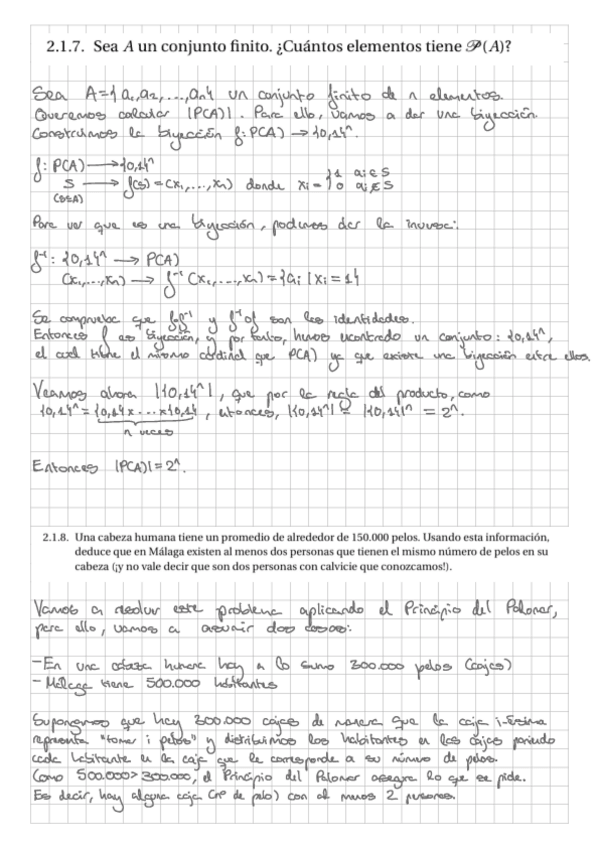 2.1.7. Sea A un conjunto finito. ¿Cuántos elementos tiene 𝒫(A)?
Sea A={a₁,a₂,...,aₙ} un conjunto finito de n elementos.
Queremos calcular |P(A)|. Para ello, vamos a dar una biyección.
Construimos la biyección f: P(A) → {0,1}ⁿ.
f: P(A) → {0,1}ⁿ
S → f(S) = (x₁,...,xₙ) donde xᵢ = { 1 aᵢ ∈ S
0 aᵢ ∉ S
(S⊆A)
Para ver que es una biyección, podemos dar la inversa:
f⁻¹: {0,1}ⁿ → P(A)
(x₁,...,xₙ) → f⁻¹(x₁,...,xₙ) = {aᵢ | xᵢ = 1}
Se comprueba que f∘f⁻¹ y f⁻¹∘f son las identidades.
Entonces f es biyección, y por tanto, hemos encontrado un conjunto: {0,1}ⁿ,
el cual tiene el mismo cardinal que P(A) ya que existe una biyección entre ellos.
Veamos ahora |{0,1}ⁿ|, que por la regla del producto, como
{0,1}ⁿ = {0,1}x...x{0,1}, entonces, |{0,1}ⁿ| = |{0,1}|ⁿ = 2ⁿ.
n veces
Entonces |P(A)| = 2ⁿ.
2.1.8. Una cabeza humana tiene un promedio de alrededor de 150.000 pelos. Usando esta información,
deduce que en Málaga existen al menos dos personas que tienen el mismo número de pelos en su
cabeza (¡y no vale decir que son dos personas con calvicie que conozcamos!).
Vamos a resolver este problema aplicando el Principio del Palomar,
para ello, vamos a asumir dos cosas:
-En una cabeza humana hay a lo sumo 300.000 pelos (cajas)
-Málaga tiene 500.000 habitantes
Supongamos que hay 300.000 cajas de manera que la caja i-ésima
representa "tener i pelos" y distribuimos los habitantes en las cajas poniendo
cada habitante en la caja que le corresponde a su número de pelos.
Como 500.000>300.000, el Principio del Palomar asegura lo que se pide.
Es decir, hay alguna caja (nº de pelo) con al menos 2 personas.